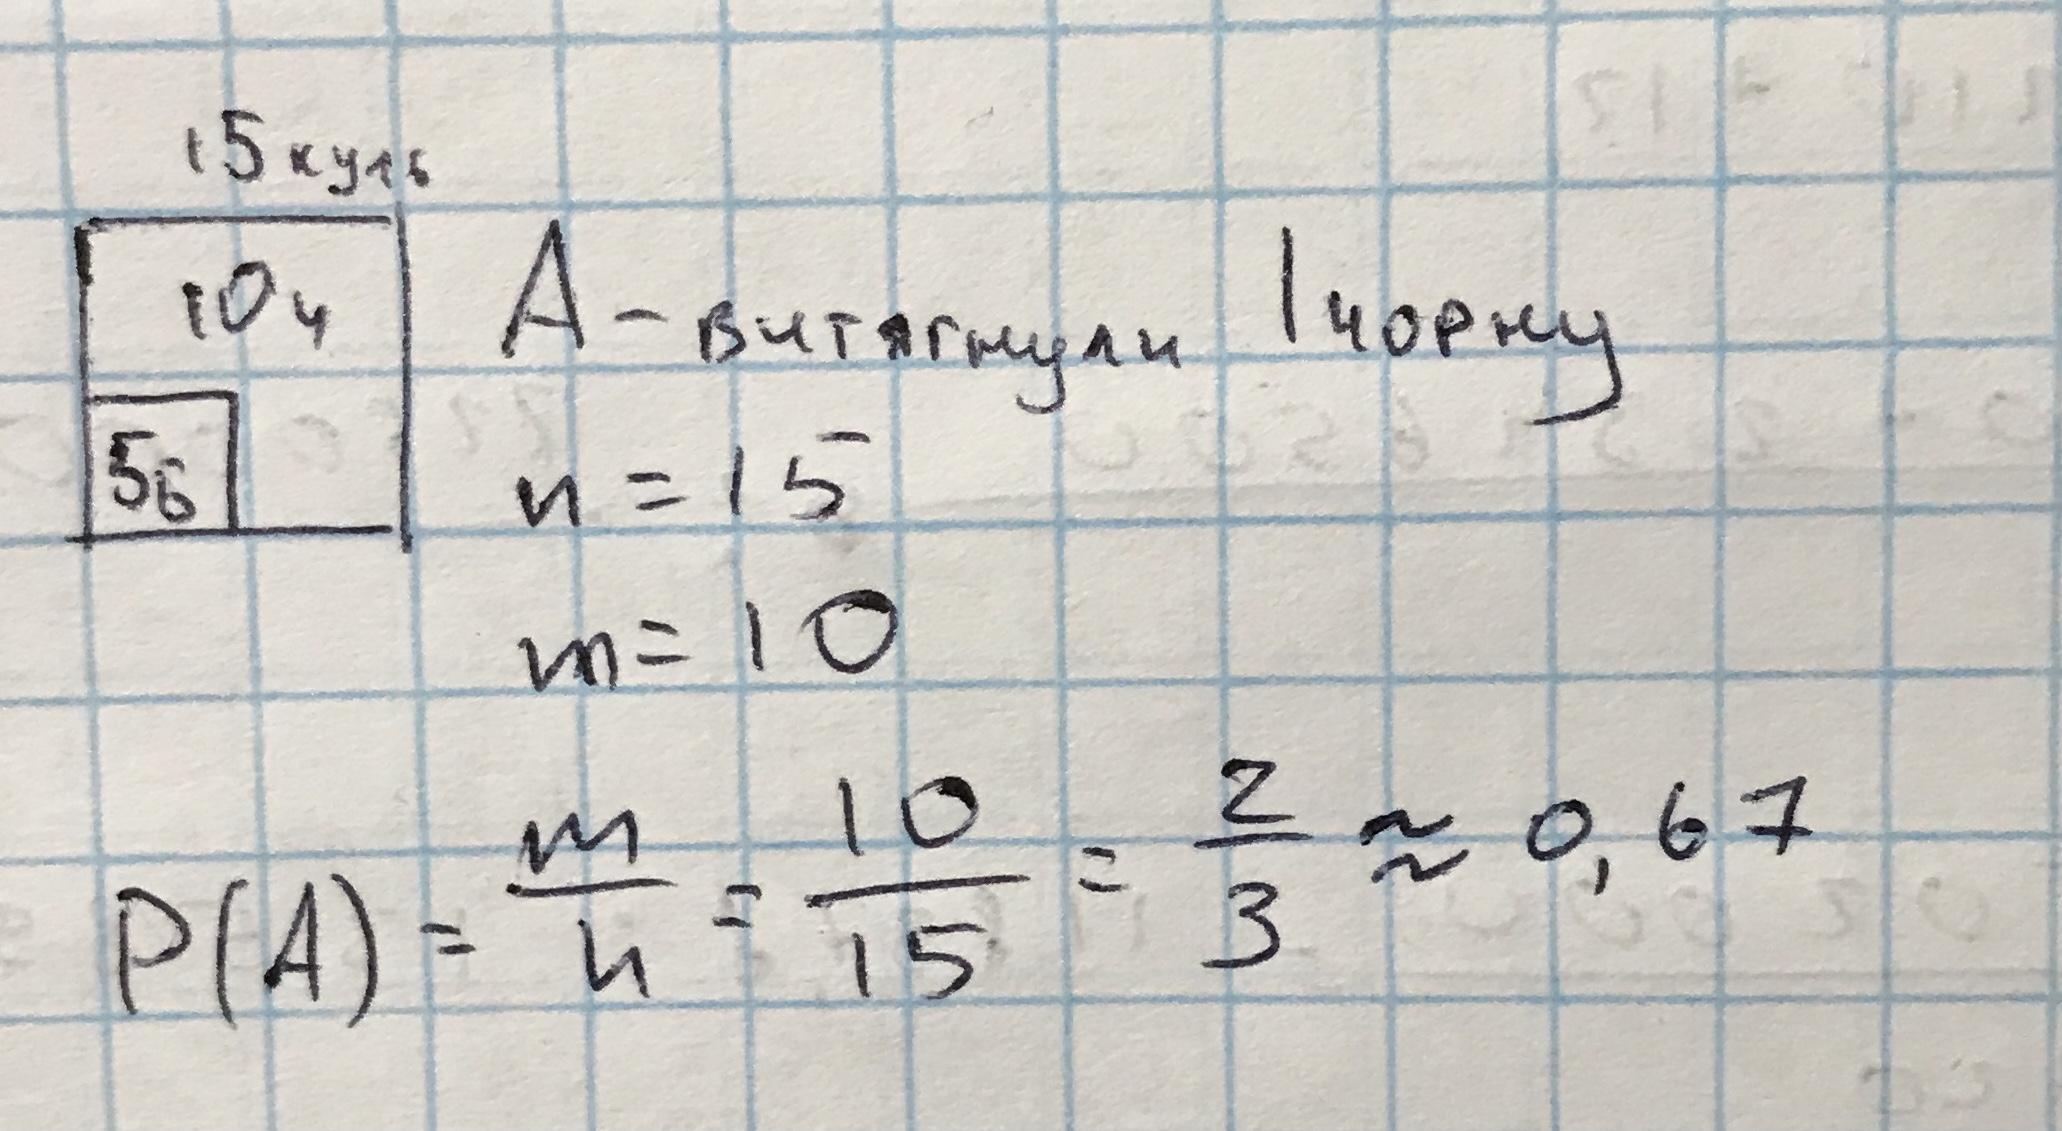 15 куль
10ч
5б
A - витягнули 1 чорну
n = 15
m = 10
P(A) = m/n = 10/15 = 2/3 ≈ 0,67